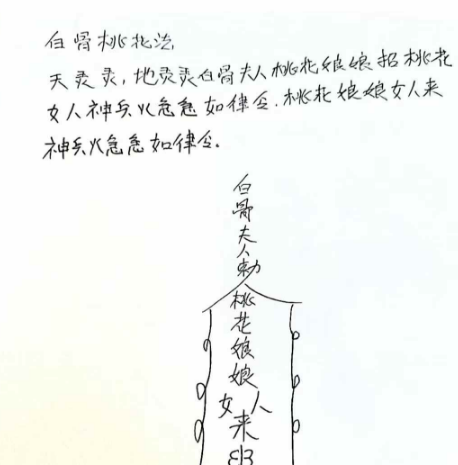 白骨桃花法
天灵灵,地灵灵白骨夫人桃花娘娘招桃花
女人神兵火急急如律令.桃花娘娘女人来
神兵火急急如律令.
白骨夫人勅
桃花娘娘
女人
来